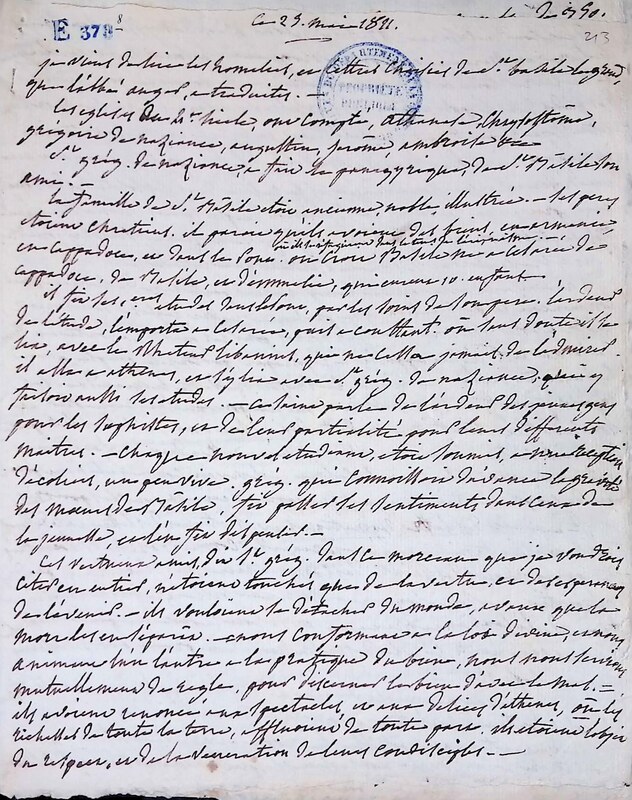 E 378⁸
ce 25. mai 1811.
213
DÉPARTEMENTALES
PROPRIÉTÉ
PUBLIQUE
je viens de lire les homelies, et lettres choisies de st. basile le grand,
que l'abbé auger a traduites. —
les eglises du 4e. siecle, ont compté, Athanase, Chrysostôme,
gregoire de nazianze, augustin, jerôme, ambroise &c
St. grég. de nazianze, a fait le panegyrique, de St. Basile son
ami. —
la famille de St. Basile etoit ancienne, noble, illustrée. — ses peres
etoient chretiens. il paroit qu'ils avoient des biens, en armenie,
en cappadoce, et dans le Pont. on croit Basile né a Césarée de
cappadoce, de Basile, et d'emmelie, qui eurent 10. enfants.
il fit ses etudes dans le Pont, par les soins de son pere. le desir
de l'étude, l'emporta a Césarée, puis a constant. où sans doute il se
lia, avec le Rhéteur libanius, qui ne cessa jamais de l'admirer.
il alla a athenes, et s'y lia avec St. grég. de nazianze, qui y
faisoit aussi ses etudes. — ce saint parle de l'ardeur des jeunes gens
pour les sophistes, et de leur partialité pour leurs differents
maitres. — chaque nouvel etudiant, etoit soumis, a une reception
d'écoliers, un peu vive. grég. qui connoissoit d'avance la gravité
des mœurs de Basile, fit passer ses sentiments dans ceux de
la jeunesse, et l'en fit dispenser. —
Ces vertueux amis, dit St. grég. dans ce morceau que je voudrois
citer en entier, n'etoient touchés que de la vertu, et des esperances
de l'avenir. — ils vouloient se détacher du monde, avant que la
mort les en séparât. — nous conformant a la loi divine, et nous
animant l'un l'autre a la pratique du bien, nous nous servions
mutuellement de regle, pour discerner le bien d'avec le mal. =
ils avoient renoncé aux spectacles, et aux delices d'athenes, où les
richesses de toute la terre, affluoient de toute part. ils etoient l'objet
du respect, et de la veneration de leurs condisciples. —